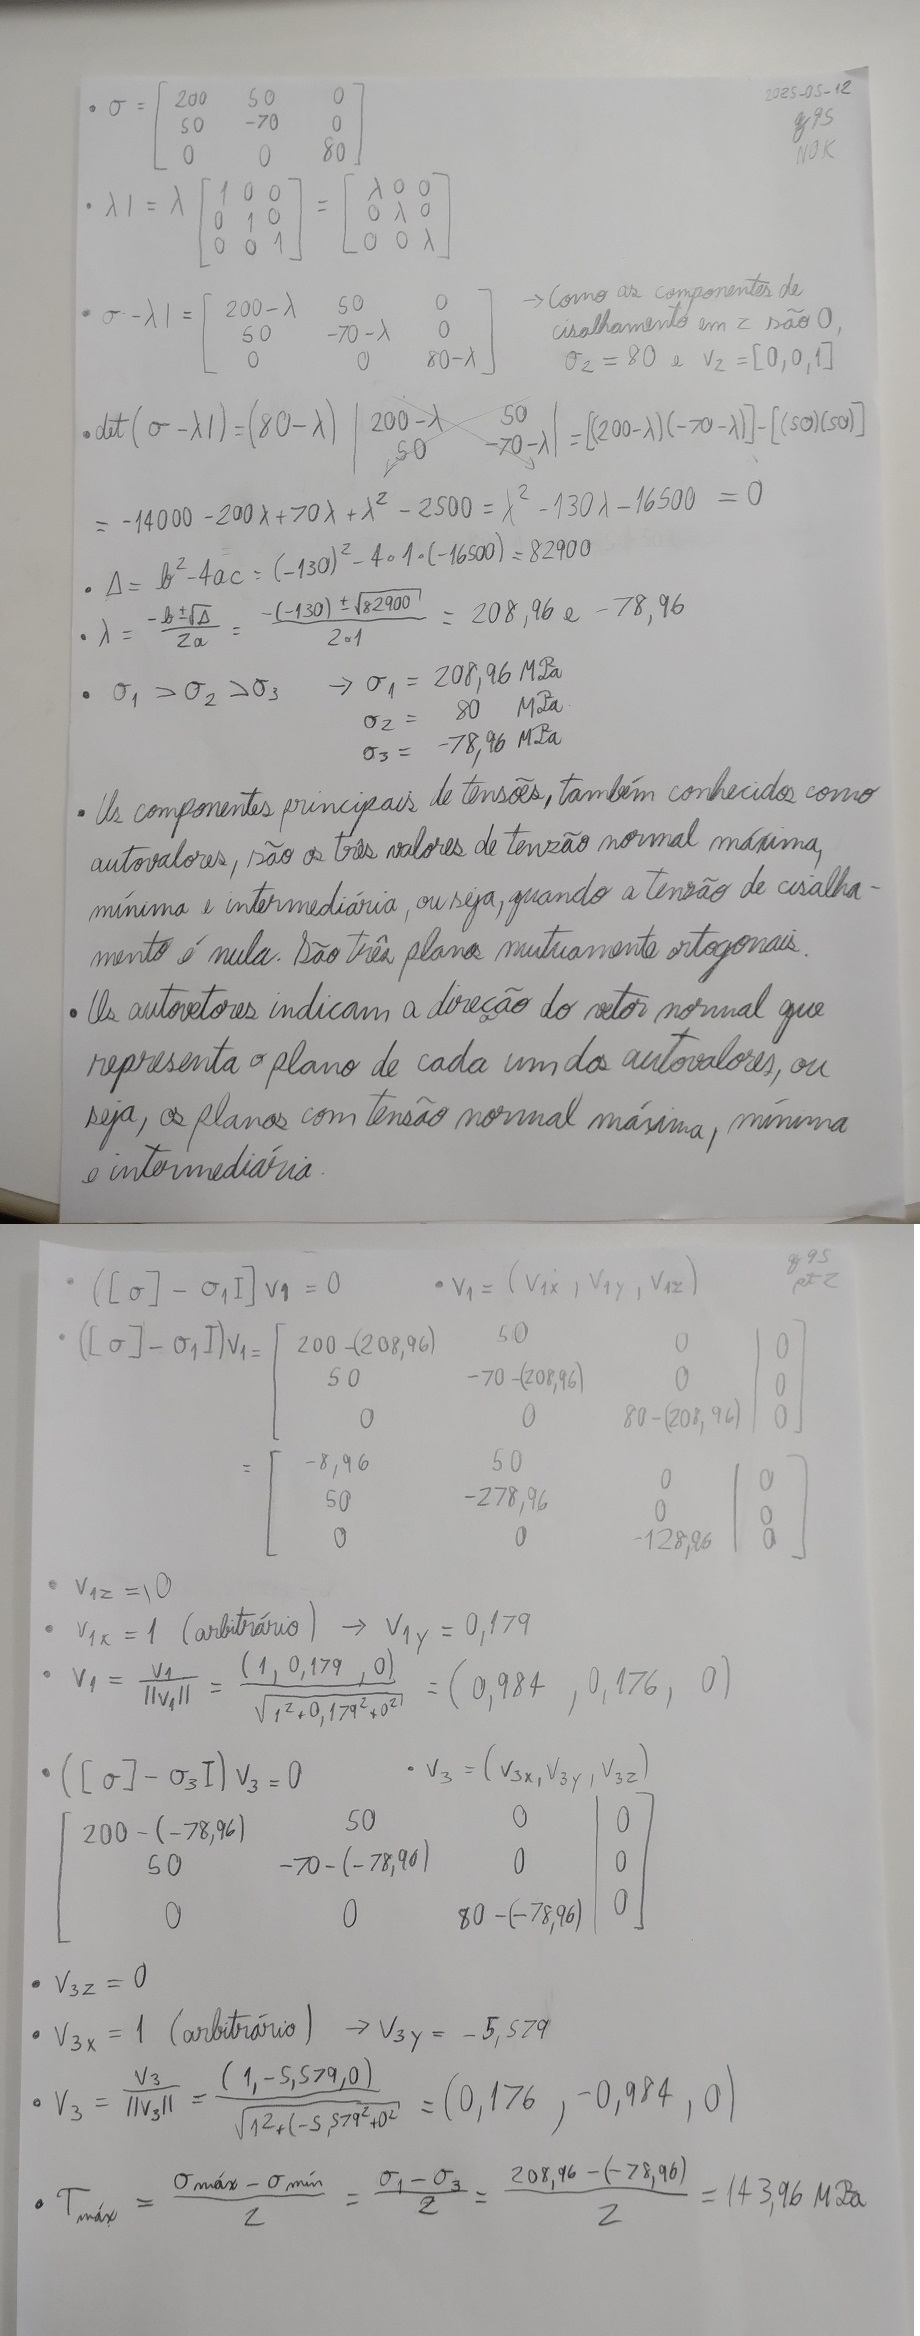 2025-05-12
q95
NOK
• σ = [200 50 0
50 -70 0
0 0 80]
• λI = λ [1 0 0
0 1 0
0 0 1] = [λ 0 0
0 λ 0
0 0 λ]
• σ-λI = [200-λ 50 0
50 -70-λ 0
0 0 80-λ]
→ Como as componentes de
cisalhamento em z são 0,
σ2 = 80 e v2 = [0,0,1]
• det(σ-λI)=(80-λ) |200-λ 50
50 -70-λ| = [(200-λ)(-70-λ)]-[(50)(50)]
= -14000 -200λ+70λ+λ² -2500 = λ² -130λ -16500 = 0
• Δ = b²-4ac = (-130)² -4•1•(-16500) = 82900
• λ = -b±√Δ/2a = -(-130)±√82900/2•1 = 208,96 e -78,96
• σ1 > σ2 > σ3 → σ1 = 208,96 MPa
σ2 = 80 MPa
σ3 = -78,96 MPa
• Os componentes principais de tensões, também conhecidos como
autovalores, são os três valores de tenzão normal máxima,
mínima e intermediária, ou seja, quando a tenzão de cisalha-
mento é nula. São três planos mutuamente ortogonais.
• Os autovetores indicam a direção do vetor normal que
representa o plano de cada um dos autovalores, ou
seja, os planos com tensão normal máxima, mínima
e intermediária.
q95
pt2
• ([σ] - σ1I]v1 = 0 • v1 = (v1x, v1y, v1z)
• ([σ]-σ1I)v1 = [200-(208,96) 50 0 | 0
50 -70-(208,96) 0 | 0
0 0 80-(208,96) | 0]
= [-8,96 50 0 | 0
50 -278,96 0 | 0
0 0 -128,96 | 0]
• v1z = 0
• v1x = 1 (arbitrário) → v1y = 0,179
• v1 = v1/||v1|| = (1, 0,179, 0)/√1²+0,179²+0² = (0,984, 0,176, 0)
• ([σ]-σ3I)v3 = 0 • v3 = (v3x, v3y, v3z)
[200-(-78,96) 50 0 | 0
50 -70-(-78,96) 0 | 0
0 0 80-(-78,96) | 0]
• v3z = 0
• v3x = 1 (arbitrário) → v3y = -5,579
• v3 = v3/||v3|| = (1,-5,579,0)/√1²+(-5,579²+0² = (0,176, -0,984, 0)
• Tmáx = σmáx - σmín/2 = σ1 - σ3/2 = 208,96 -(-78,96)/2 = 143,96 MPa